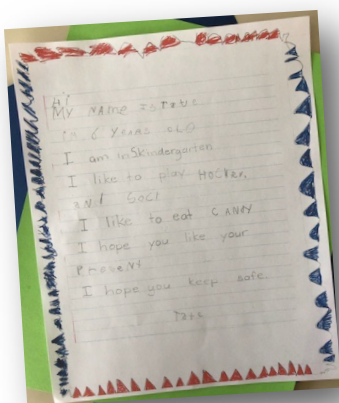 Hi
My NAME IS
Im 6 YEARS OLD
I am in Skindergarten
I like to play Hockey,
AND Gocl
I like to eat CANDY
I hope you like your
Present
I hope you keep safe.